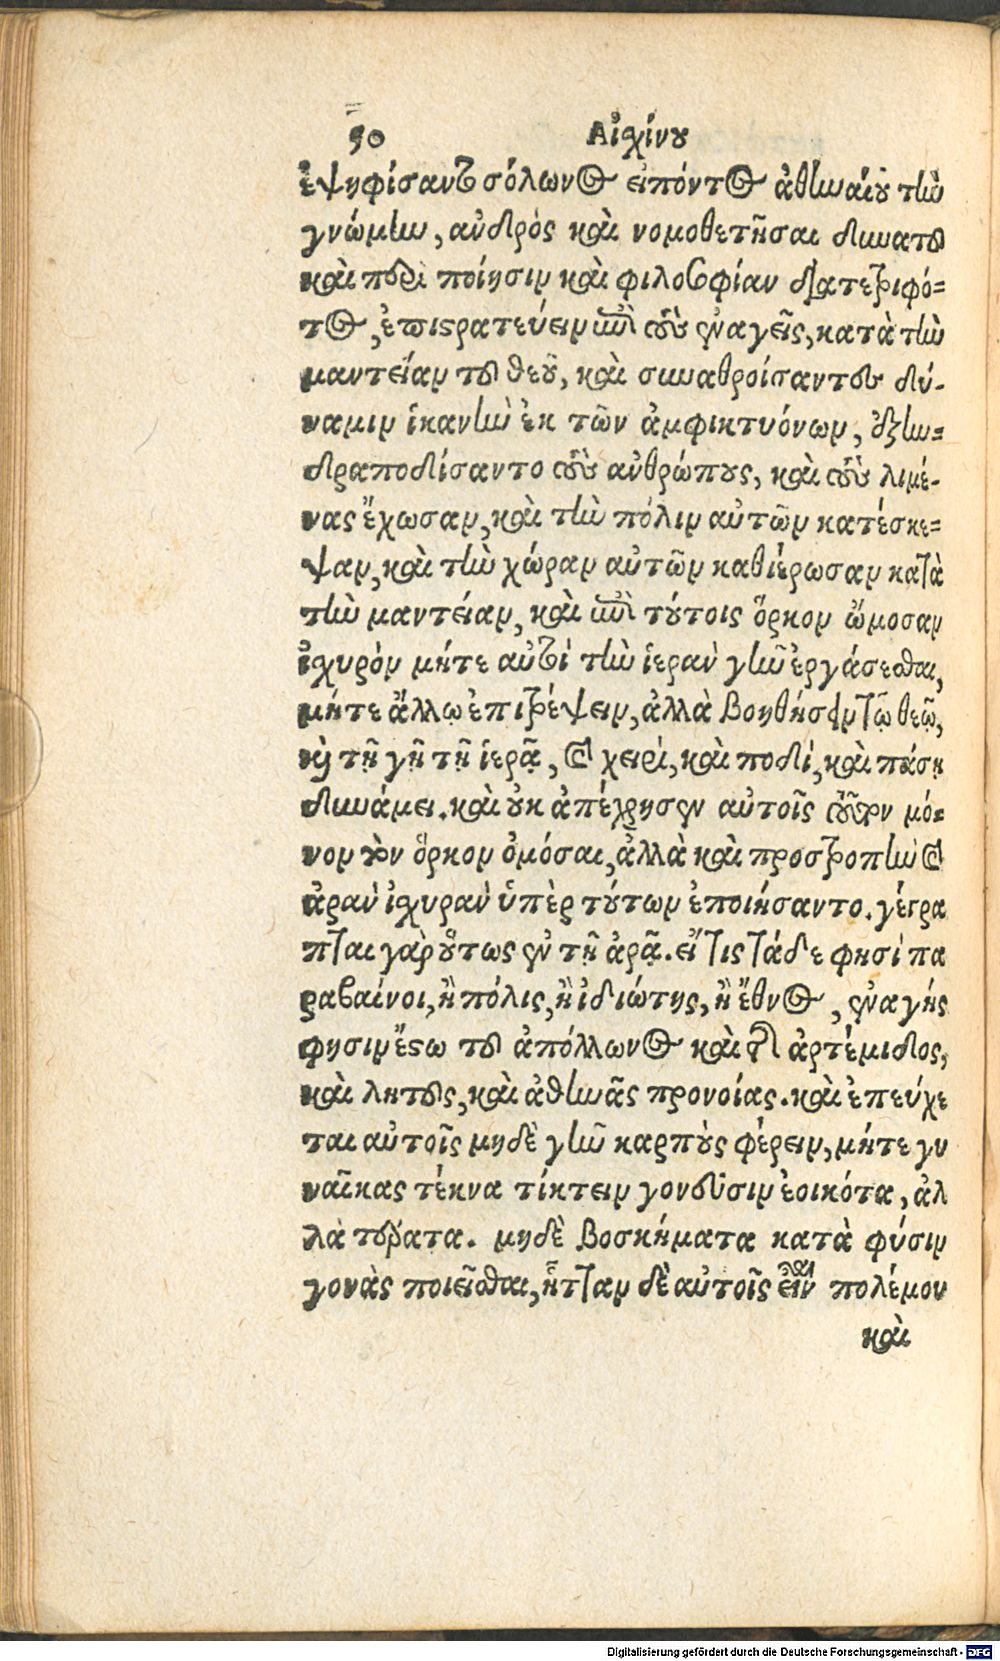 50 Αἰσχίνου
ἐψηφίσαντο σόλωνος εἰπόντος ἀθηναίου τὴν
γνώμην, ἀνδρὸς καὶ νομοθετῆσαι δυνατοῦ
καὶ περὶ ποίησιν καὶ φιλοσοφίαν διατετριφό-
τος, ἐπιστρατεύειν ἐπὶ τοὺς ἐναγεῖς, κατὰ τὴν
μαντείαν τοῦ θεοῦ, καὶ συναθροίσαντες δύ-
ναμιν ἱκανὴν ἐκ τῶν ἀμφικτυόνων, ἐξην-
δραποδίσαντο τοὺς ἀνθρώπους, καὶ τοὺς λιμέ-
νας ἔχωσαν, καὶ τὴν πόλιν αὐτῶν κατέσκε-
ψαν, καὶ τὴν χώραν αὐτῶν καθιέρωσαν κατὰ
τὴν μαντείαν, καὶ ἐπὶ τούτοις ὅρκον ὤμοσαν
ἰσχυρὸν μήτε αὐτοὶ τὴν ἱερὰν γῆν ἐργάσεσθαι,
μήτε ἄλλῳ ἐπιτρέψειν, ἀλλὰ βοηθήσειν τῷ θεῷ,
καὶ τῇ γῇ τῇ ἱερᾷ, καὶ χειρὶ, καὶ ποδί, καὶ πάσῃ
δυνάμει. καὶ οὐκ ἀπέχρησεν αὐτοῖς τοῦτον μό-
νον τὸν ὅρκον ὀμόσαι, ἀλλὰ καὶ προστροπὴν καὶ
ἀρὰν ἰσχυρὰν ὑπὲρ τούτων ἐποιήσαντο. γέγρα
πται γὰρ οὕτως ἐν τῇ ἀρᾷ. εἴ τις τάδε φησὶ πα
ραβαίνοι, ἢ πόλις, ἢ ἰδιώτης, ἢ ἔθνος, ἐναγής
φησιν ἔστω τοῦ ἀπόλλωνος καὶ τῆς ἀρτέμιδος,
καὶ λητοῦς, καὶ ἀθηνᾶς προνοίας. καὶ ἐπεύχε
ται αὐτοῖς μηδὲ γῆν καρποὺς φέρειν, μήτε γυ
ναῖκας τέκνα τίκτειν γονεῦσιν ἐοικότα, ἀλ
λὰ τέρατα. μηδὲ βοσκήματα κατὰ φύσιν
γονὰς ποιεῖσθαι, ἧτταν δὲ αὐτοῖς εἶναι πολέμου
καὶ
Digitalisierung gefördert durch die Deutsche Forschungsgemeinschaft - DFG